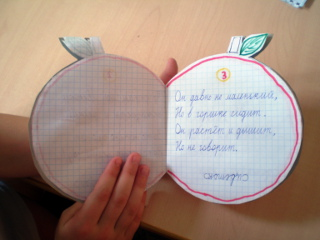 3
Он давно не маленький,
Но в горшке сидит.
Он растёт и дышит,
Но не говорит.